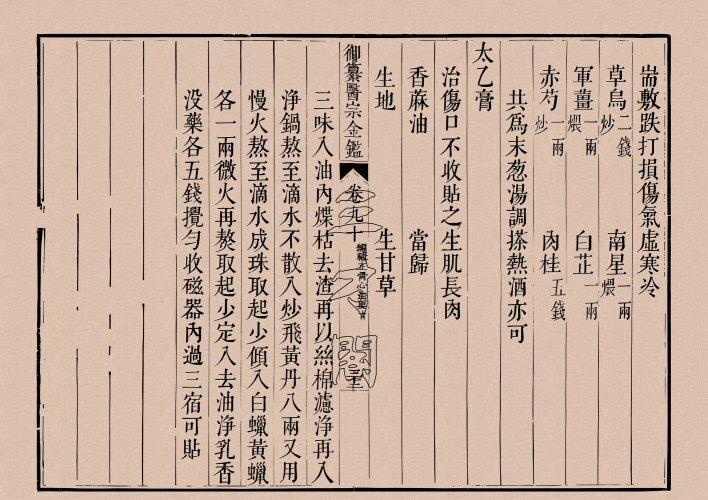 耑敷跌打損傷氣虛寒冷
草烏二錢炒 南星一兩煨
軍薑一兩煨 白芷一兩
赤芍一兩炒 肉桂五錢
共爲末葱湯調搽熱酒亦可
太乙膏
治傷口不收貼之生肌長肉
香蔴油 當歸
生地 生甘草
御纂醫宗金鑑 卷九十 編輯正骨心法要旨
三味入油內煠枯去渣再以絲棉濾淨再入
淨鍋熬至滴水不散入炒飛黃丹八兩又用
慢火熬至滴水成珠取起少傾入白蠟黃蠟
各一兩微火再熬取起少定入去油淨乳香
没藥各五錢攪勻收磁器內過三宿可貼